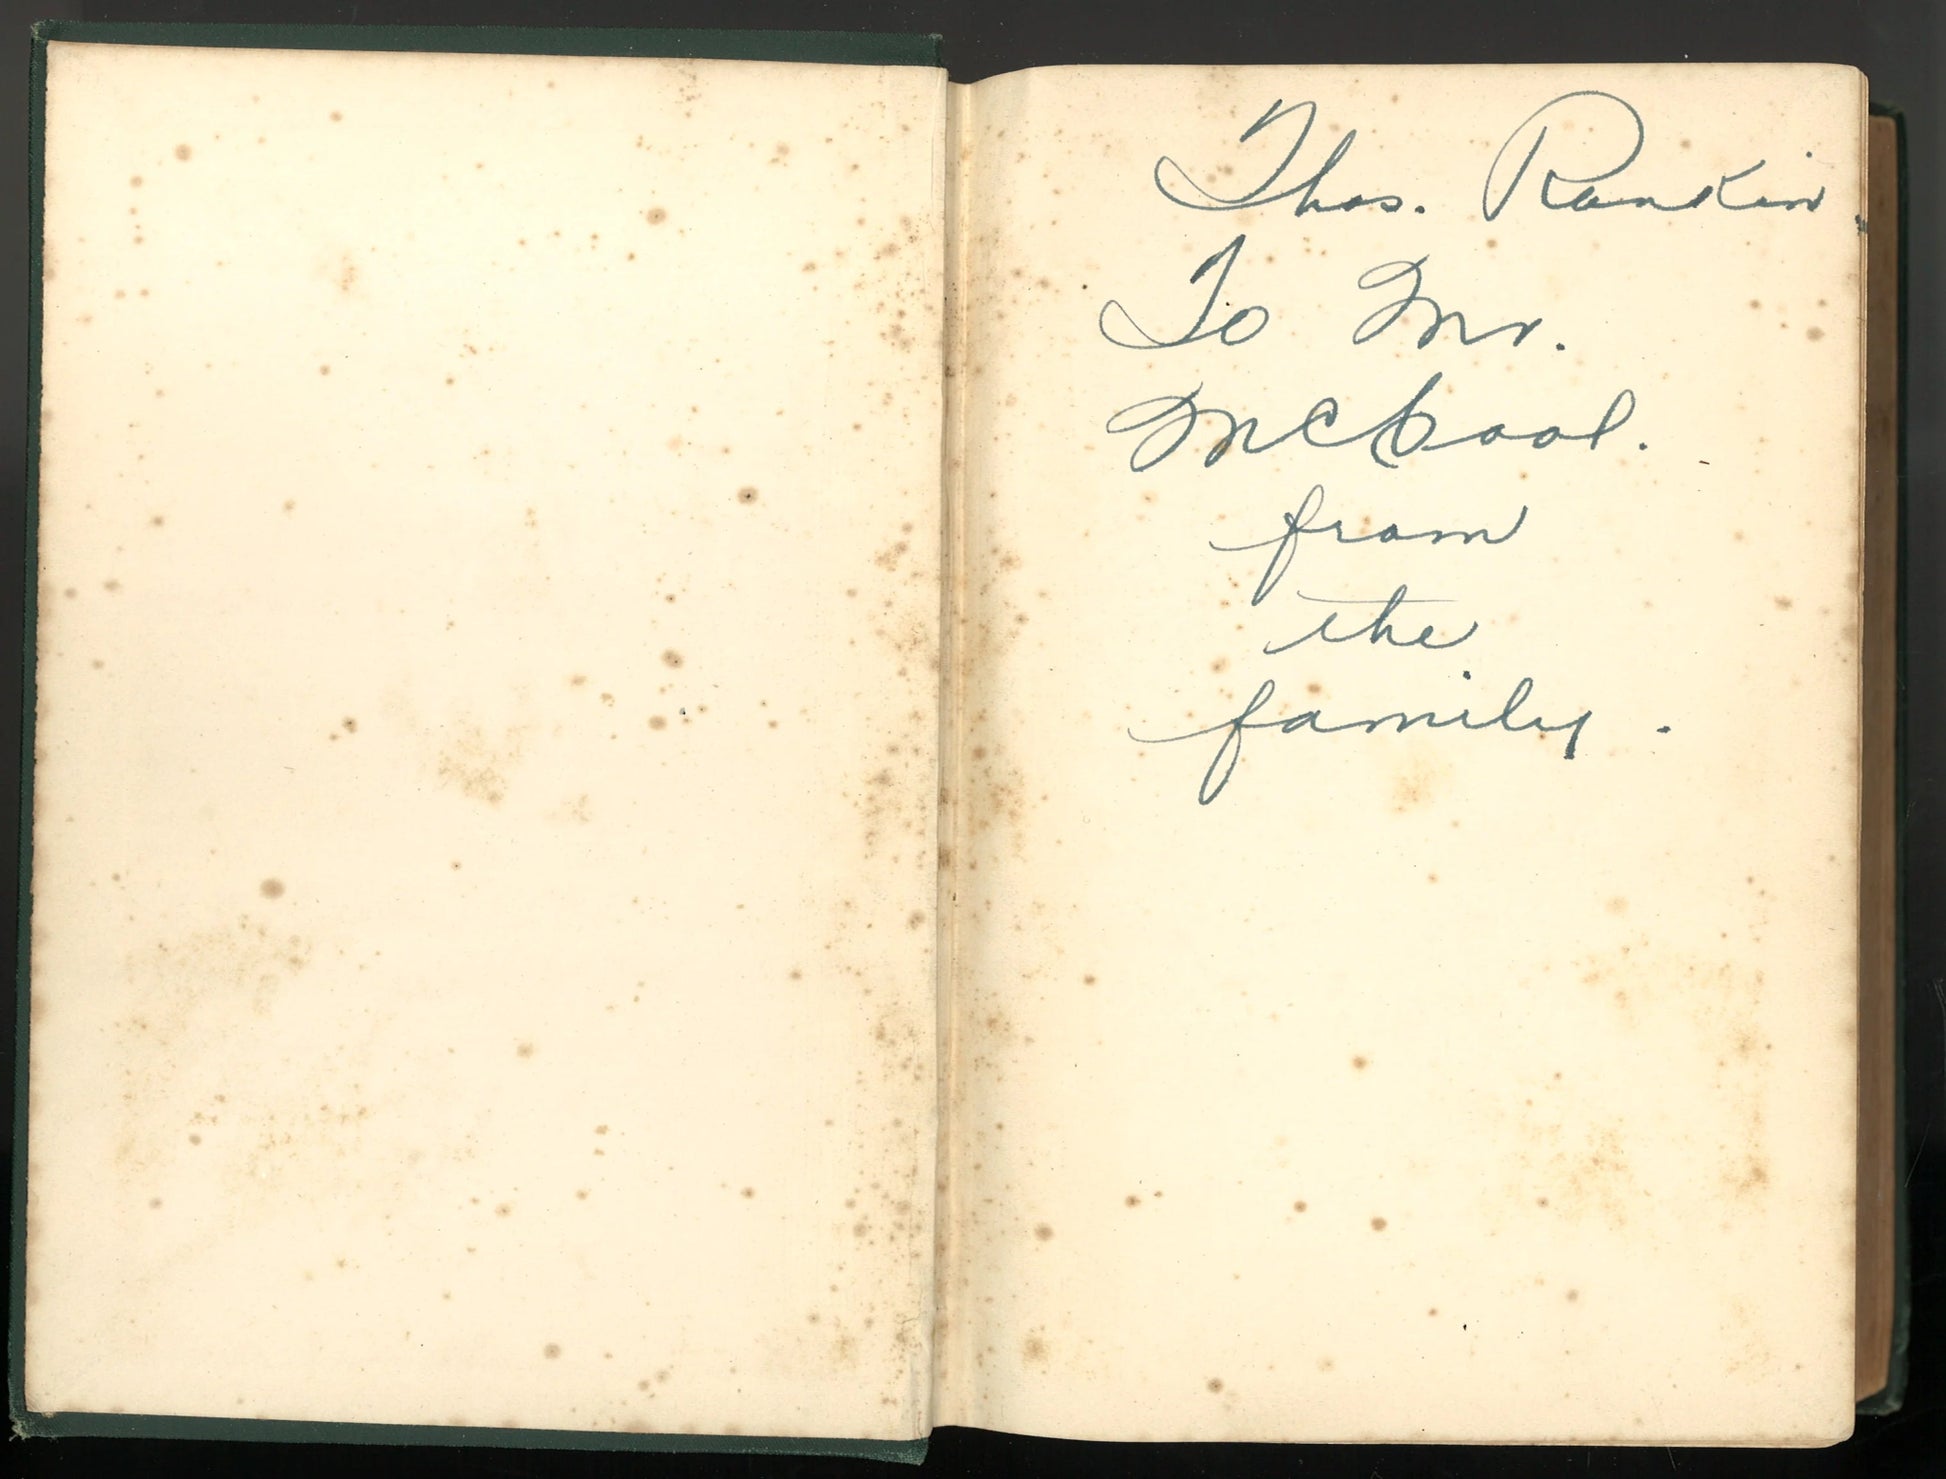 Thos. Rankin.
To Mr.
McCool.
from
the
family.